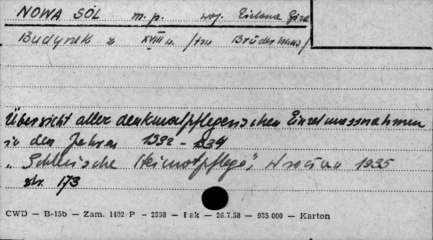 NOWA SÓL m.p. woj. Zielona Góra
Budynek z XVIII w. /tzw Brüderhaus/
Übersicht aller denkmalpflegerischen Einzelmassnahmen
in den Jahren 1932 - 1934
"Schlesische Heimatpflege", Wrocław 1935
str. 173
CWD — B-15b — Zam. 1402 P - 2338 — Łak — 26.7.58 — 935.000 — Karton